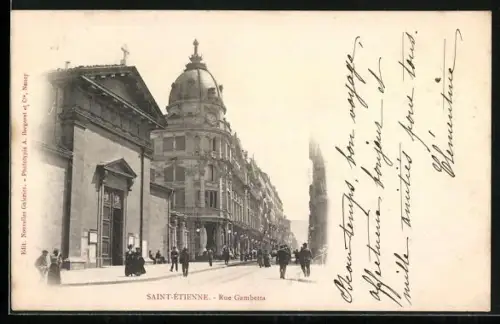 Edit. Nouvelles Galeries. - Phototypie A. Bergeret et Cie, Nancy
SAINT-ÉTIENNE. - Rue Gambetta
printemps, bon voyage,
affectueux bonjour et
mille amitiés pour tous.
Clémentine